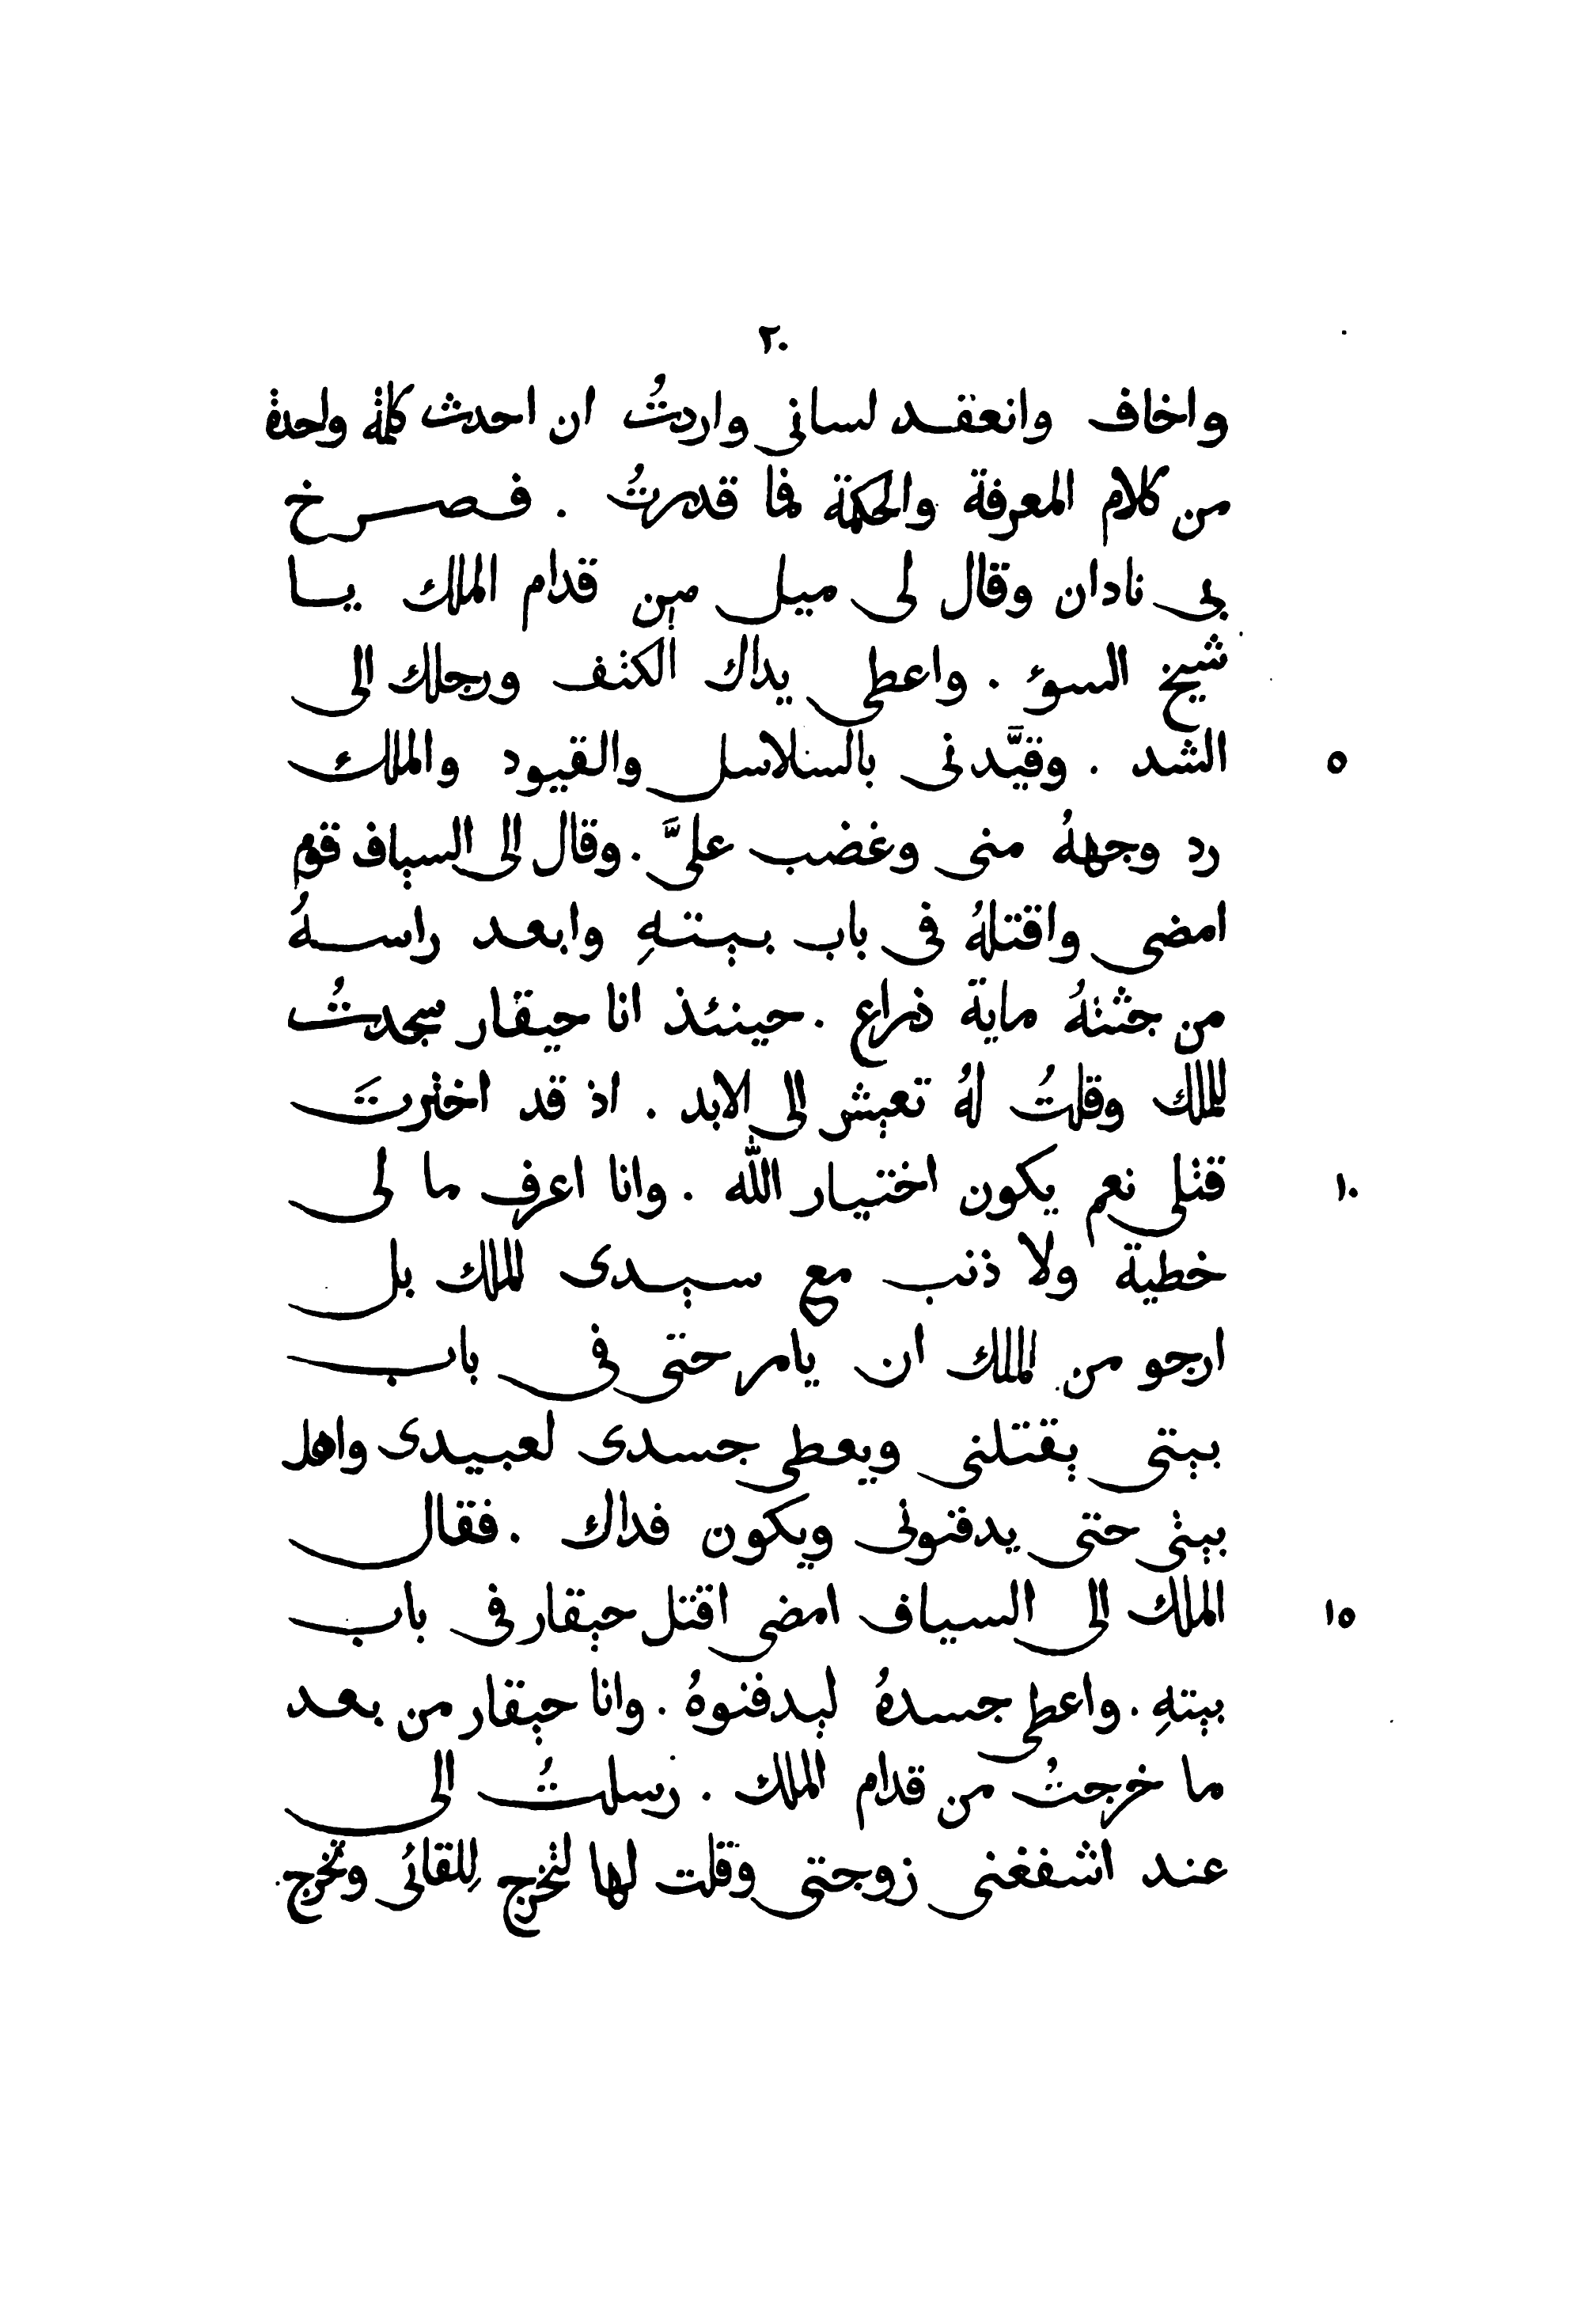 ٢٠
واخاف وانعقد لسانى واردتُ ان احدث كلمة واحدة
من كلام المعرفة والحكمة فما قدرتُ . فصرخ
بى نادان وقال لى ميل من قدام الملك يا
شيخ السوء . واعطى يداك الكتف ورجلك الى
الشد . وقيَّدنى بالسلاسل والقيود والملك
٥
رد وجههُ منى وغضب علىَّ . وقال الى السياف قوم
امضى واقتلهُ فى باب بيتهِ وابعد راسهُ
من جثتهُ ماية ذراع . حينئذ انا حيقار سجدتُ
للملك وقلتُ لهُ تعيش الى الابد . اذ قد اخترتَ
قتلى نعم يكون اختيار الله . وانا اعرف ما لى
١٠
خطية ولا ذنب مع سيدى الملك بل
ارجو من الملك ان يامر حتى فى باب
بيتى يقتلنى ويعطى جسدى لعبيدى واهل
بيتى حتى يدفنونى ويكون فداك . فقال
الملك الى السياف امضى اقتل حيقار فى باب
١٥
بيتهِ . واعطى جسدهُ ليدفنوهُ . وانا حيقار من بعد
ما خرجتُ من قدام الملك . رسلتُ الى
عند اشفغنى زوجتى وقلت لها لتخرج لِلقائى وتخرج